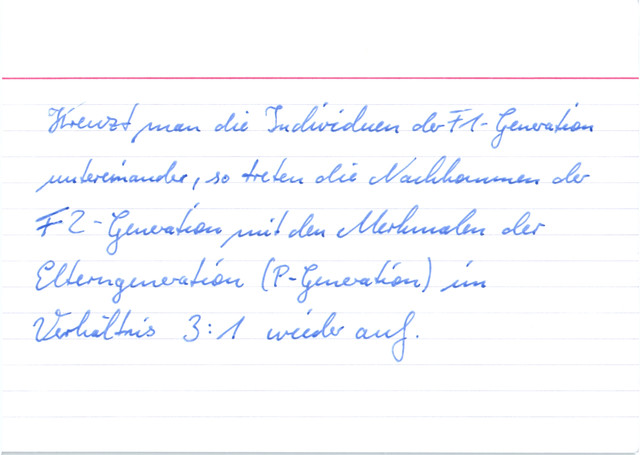 Kreuzt man die Individuen der F1-Generation
untereinander, so treten die Nachkommen der
F2-Generation mit den Merkmalen der
Elterngeneration (P-Generation) im
Verhältnis 3:1 wieder auf.